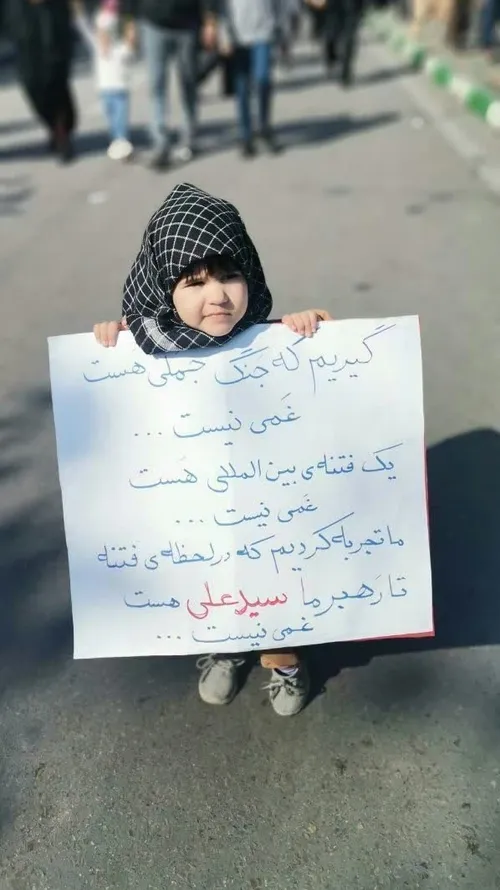 گیریم که جنگ جملی هست
غَمی نیست ...
یک فتنه‌ی بین المللی هَست
غَمی نیست ...
ما تجربه کردیم که در لحظه‌ی فتنه
تا رَهبر ما سید علی هست
غمی نیست ...